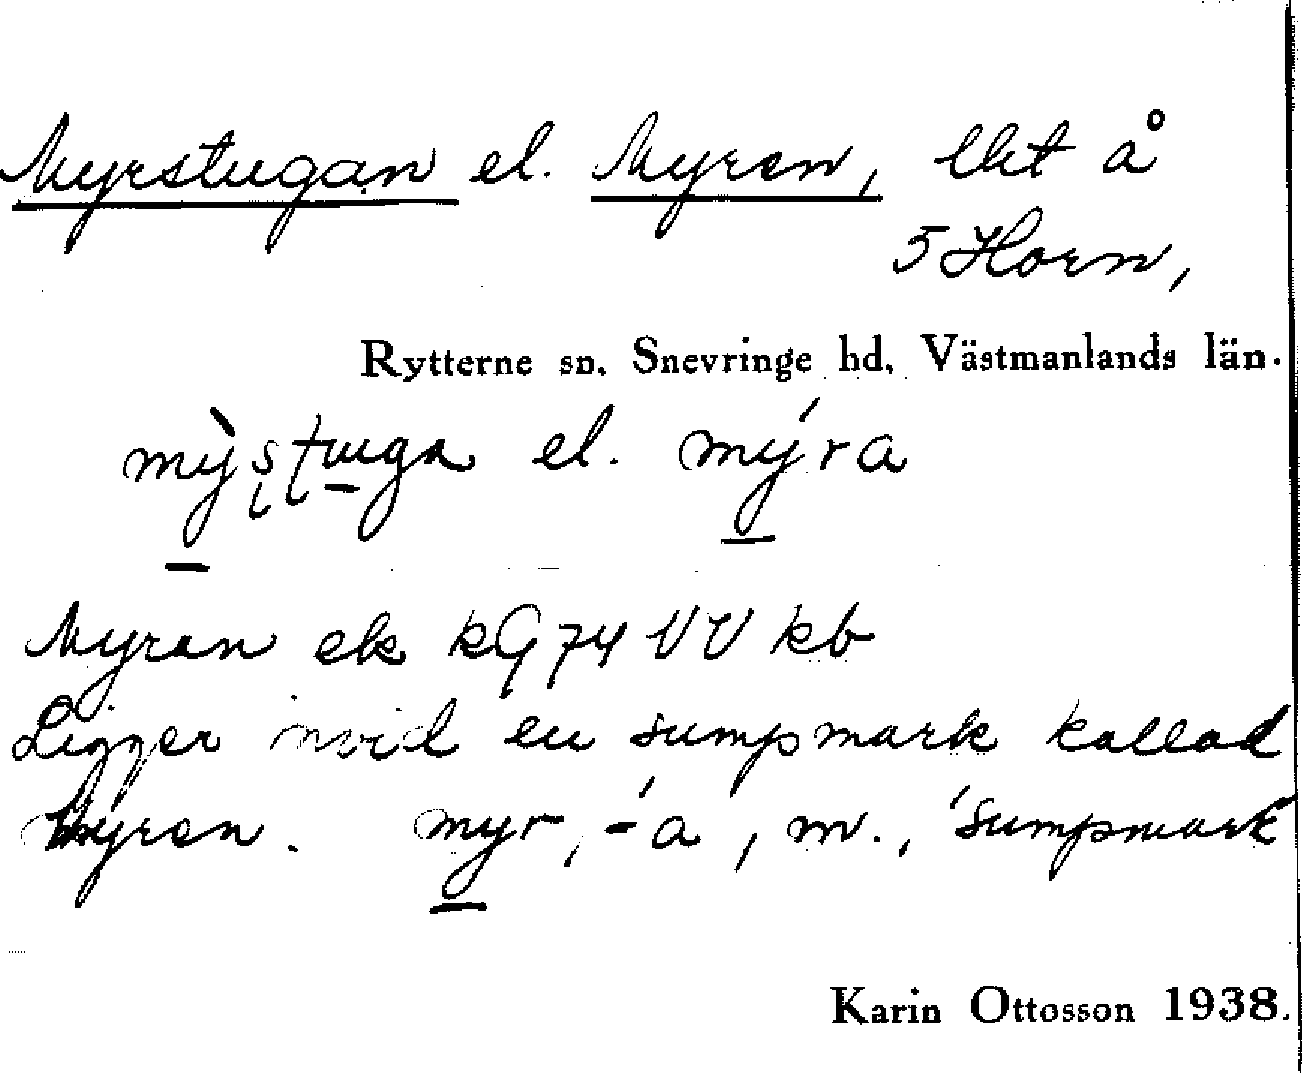 Myrstugan el. Myren, lht å
5 Horn,
Rytterne sn. Snevringe hd. Västmanlands län.
mỳstuga el. mýra
Myran ek kG 74 VV kb
Ligger invid en sumpmark kallad
Myren. myr, -´a, m., 'sumpmark
Karin Ottosson 1938.